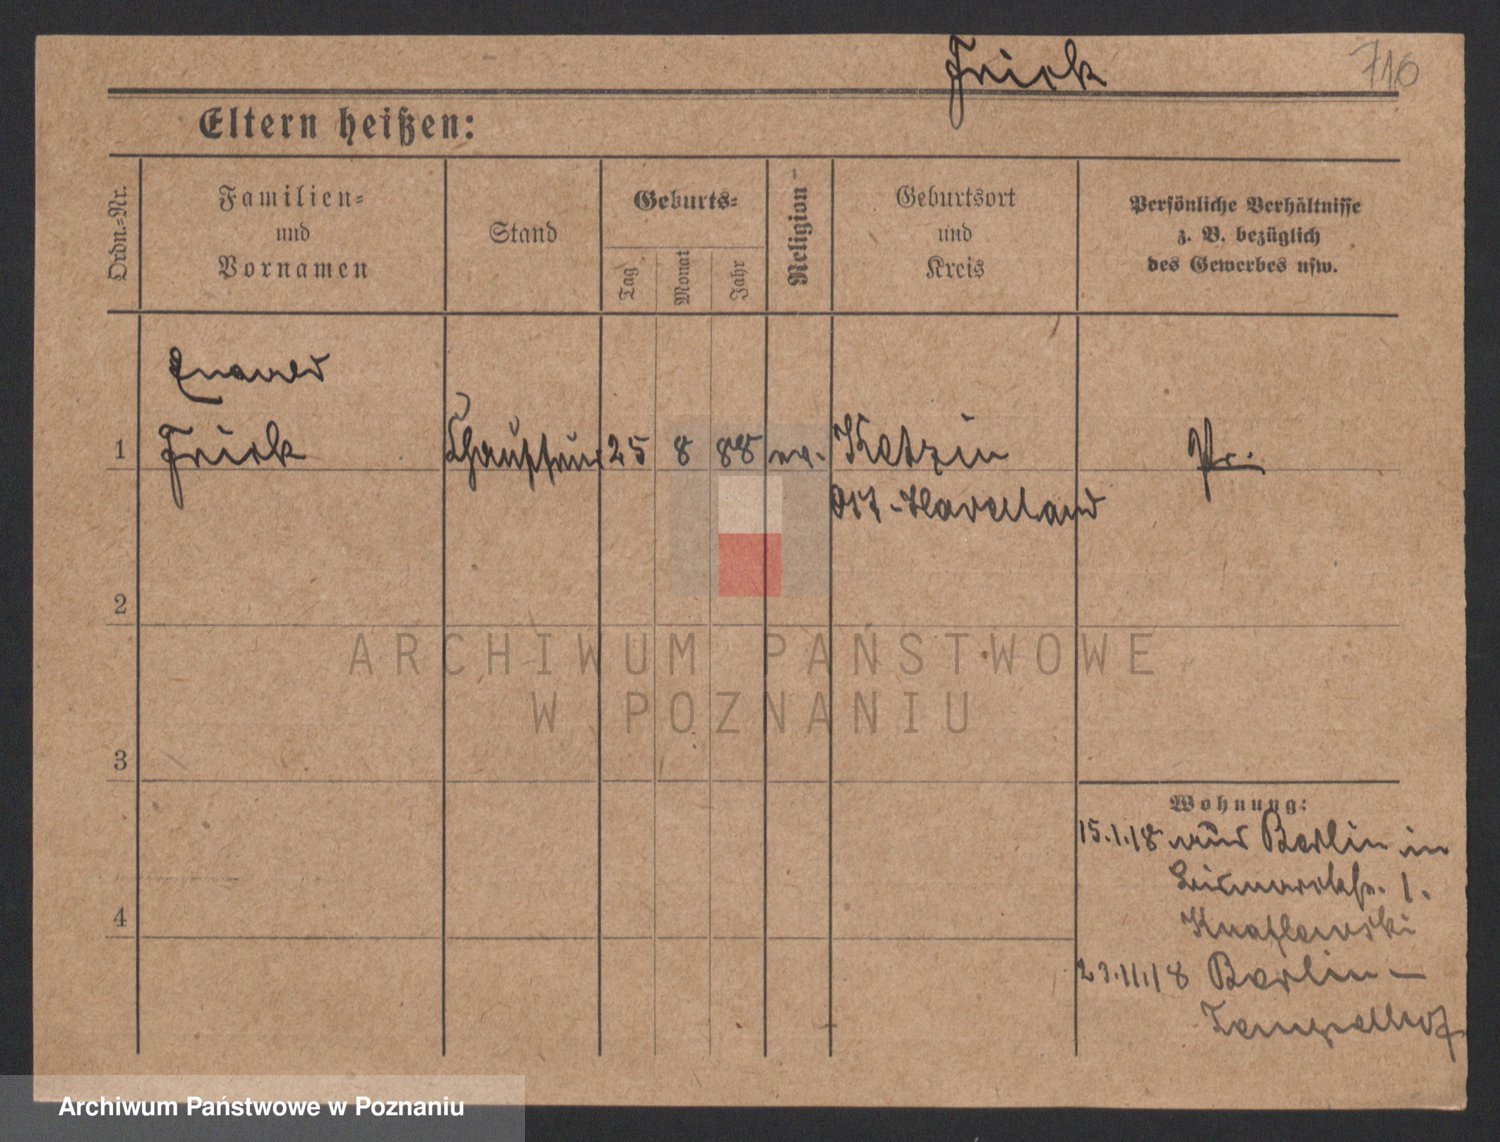 Frick
716
Eltern heißen:
Ordn.=Nr.
Familien=
und
Vornamen
Stand
Geburts=
Tag
Monat
Jahr
Religion
Geburtsort
und
Kreis
Persönliche Verhältnisse
z. B. bezüglich
des Gewerbes usw.
1
Frick
25
8
88
ev.
Ketzin
Ost-Havelland
Pr.
2
ARCHIWUM PAŃSTWOWE
W POZNANIU
3
Wohnung:
15.1.18 aus Berlin in
Bismarckstr. 1.
4
23.11.18 Berlin-
Tempelhof
Archiwum Państwowe w Poznaniu